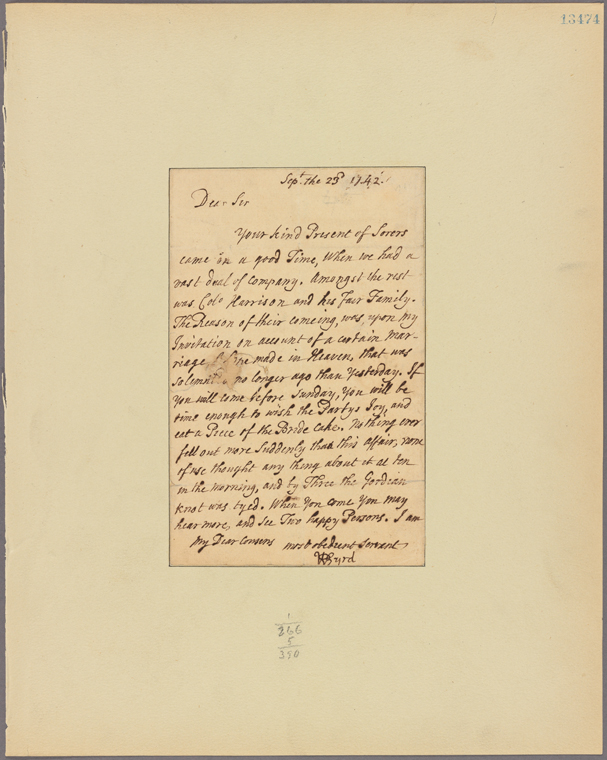 13474
Sep.t the 23d 1742.
Dear Sir
Your kind Present of Sorers
came in a good Time, when we had a
vast deal of company. Amongst the rest
was Colo Harrison and his Fair Family.
The Reason of their comeing, was upon my
Invitation on account of a certain Mar-
riage made in Heaven, that was
no longer ago than Yesterday. If
You will come before Sunday, You will be
time enough to wish the Partys Joy, and
eat a Piece of the Bride Cake. Nothing ever
fell out more Suddenly than this affair, none
of use thought any thing about it at ten
in the Morning, and by Three the Gordian
knot was tyed. When You come You may
hear more, and See Two happy Persons. I am
My Dear most obedient Servant
WByrd
1
266
5